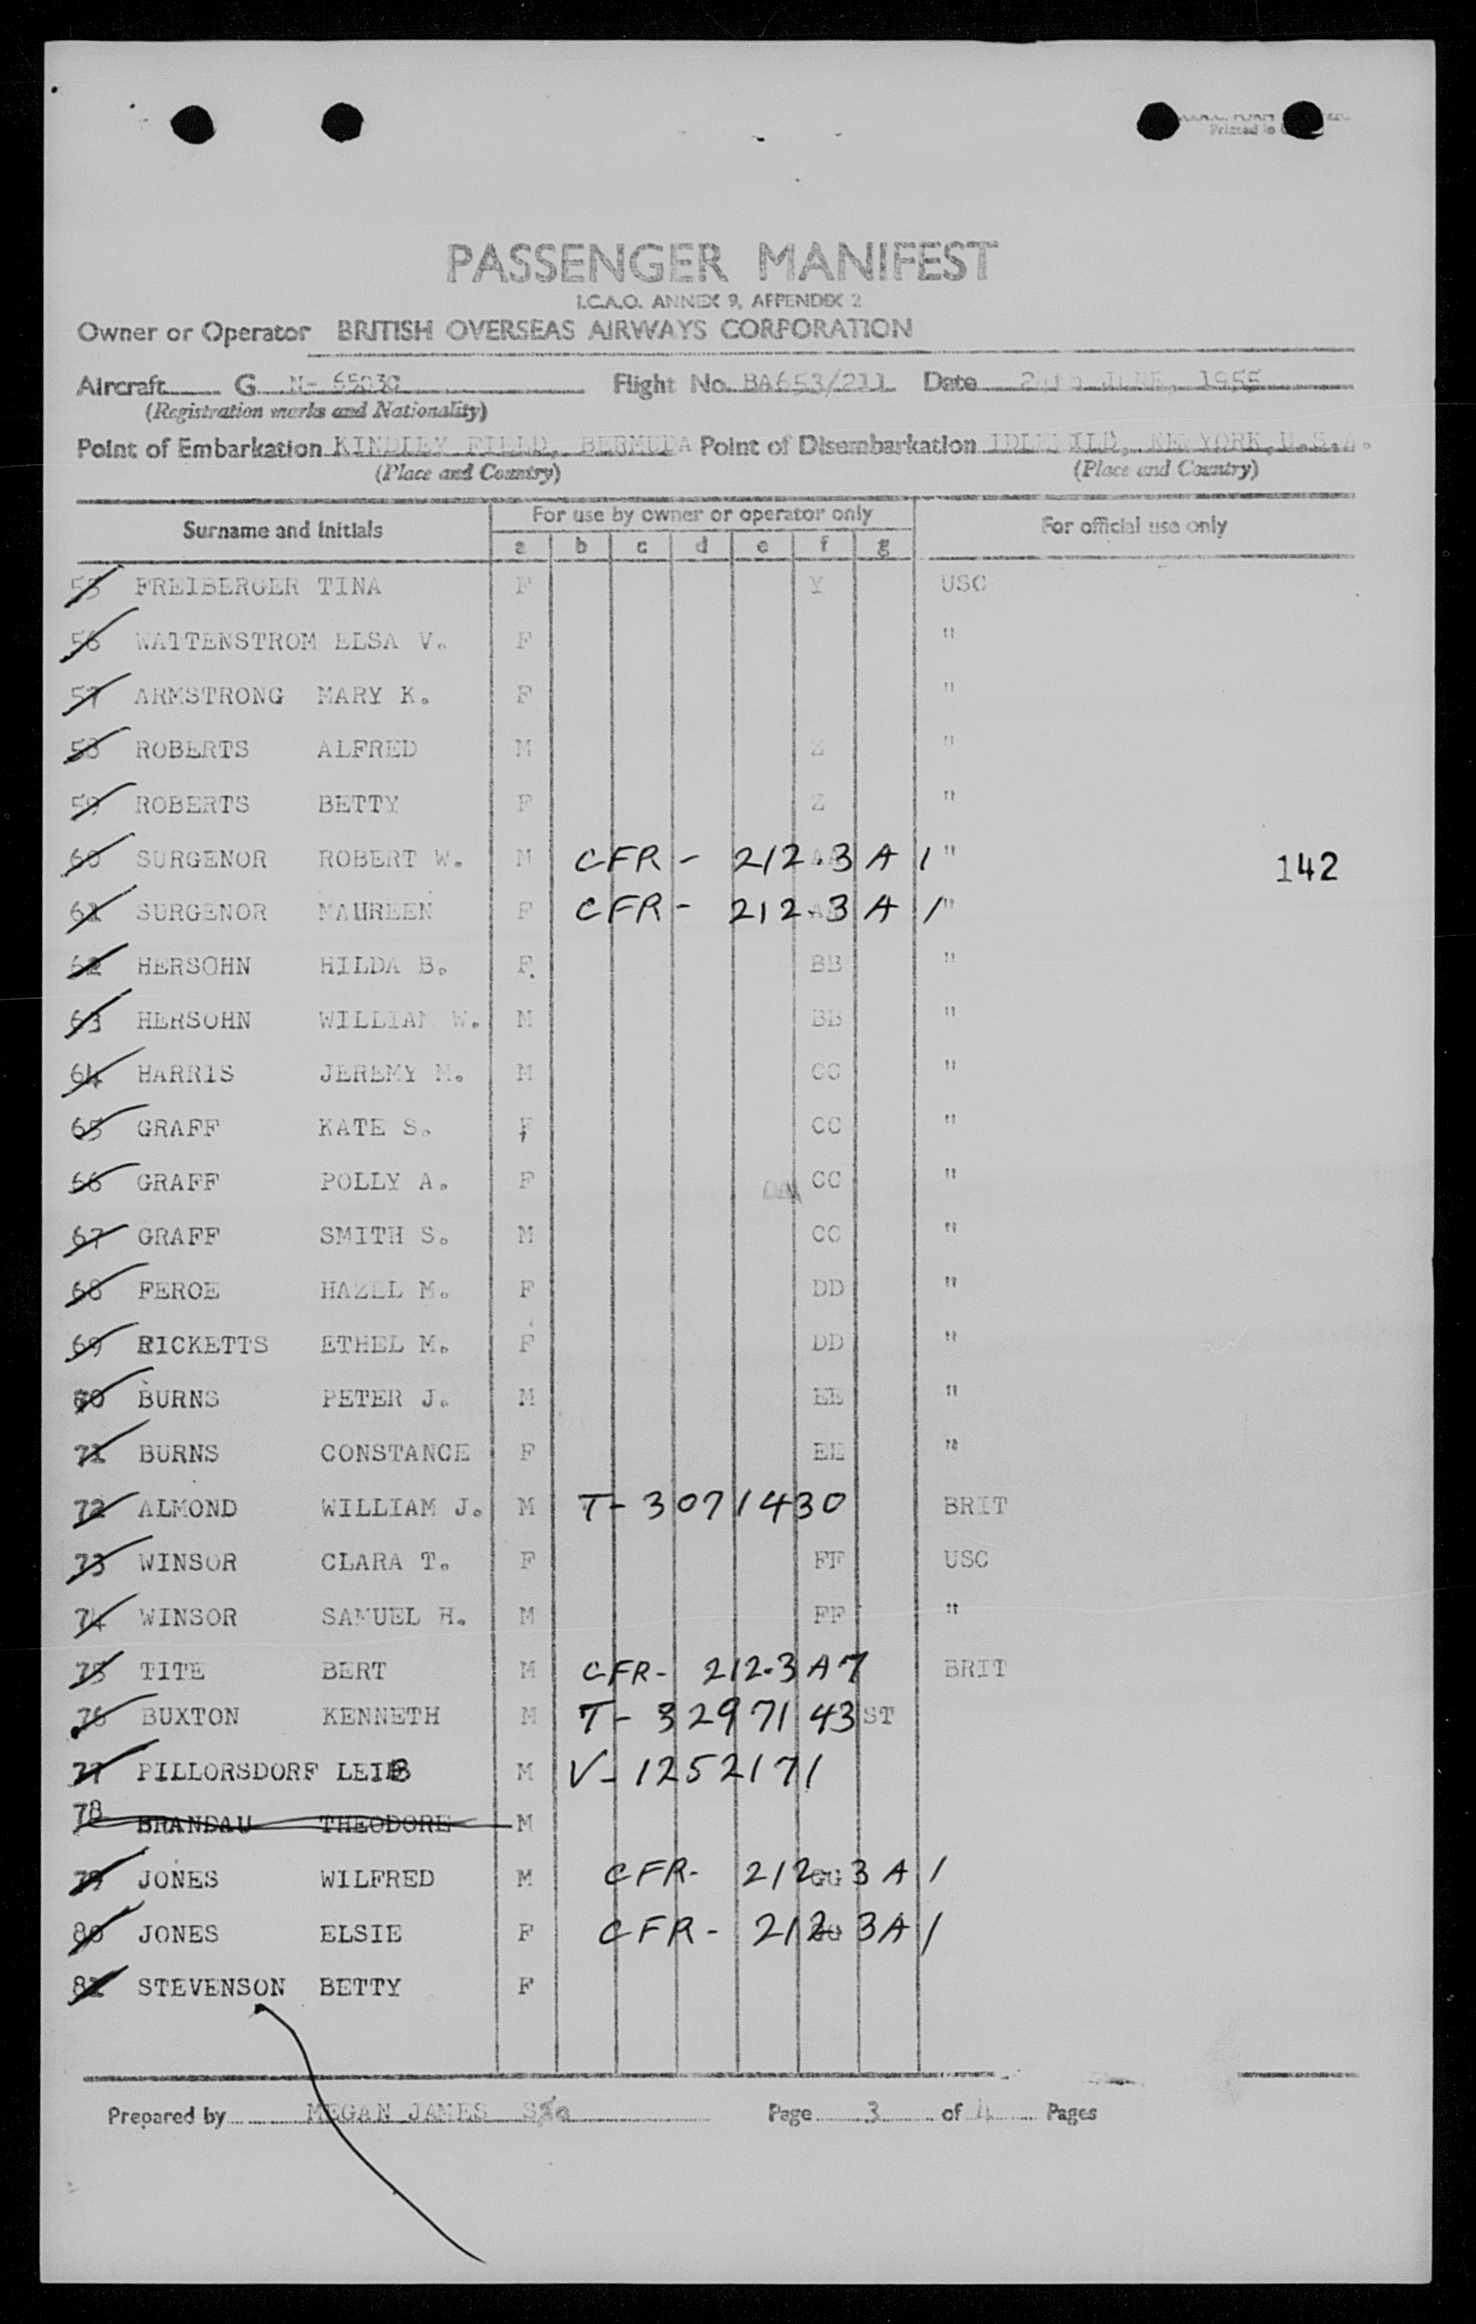 Printed in
PASSENGER MANIFEST
I.C.A.O. ANNEX 9, APPENDIX 2
Owner or Operator BRITISH OVERSEAS AIRWAYS CORPORATION
Aircraft G N- Flight No. BA653/211 Date JUNE, 1955
(Registration marks and Nationality)
Point of Embarkation KINDLEY FIELD, BERMUDA Point of Disembarkation IDLEWILD, NEW YORK, U.S.A.
(Place and Country) (Place and Country)
Surname and Initials For use by owner or operator only For official use only
a b c d e f g
55 FREIBERGER TINA F Y USC
56 WATTENSTROM ELSA V. F "
57 ARMSTRONG MARY K. F "
58 ROBERTS ALFRED M Z "
59 ROBERTS BETTY F Z "
60 SURGENOR ROBERT W. M CFR - 212.3 A 1 "
142
61 SURGENOR MAUREEN F CFR - 212.3 A 1 "
62 HERSOHN HILDA B. F BB "
63 HERSOHN WILLIAM W. M BB "
64 HARRIS JEREMY M. M CC "
65 GRAFF KATE S. F CC "
66 GRAFF POLLY A. F CC "
67 GRAFF SMITH S. M CC "
68 FEROE HAZEL M. F DD "
69 RICKETTS ETHEL M. F DD "
70 BURNS PETER J. M EE "
71 BURNS CONSTANCE F EE "
72 ALMOND WILLIAM J. M T- 3071430 BRIT
73 WINSOR CLARA T. F FF USC
74 WINSOR SAMUEL H. M FF "
75 TITE BERT M CFR- 212.3 A7 BRIT
76 BUXTON KENNETH M T- 3297143 ST
77 PILLORSDORF LEIB M V-1252171
78 BRANDAU THEODORE M
79 JONES WILFRED M CFR- 212 GG 3 A 1
80 JONES ELSIE F CFR- 212 GG 3A 1
81 STEVENSON BETTY F
Prepared by MEGAN JAMES Page 3 of 4 Pages